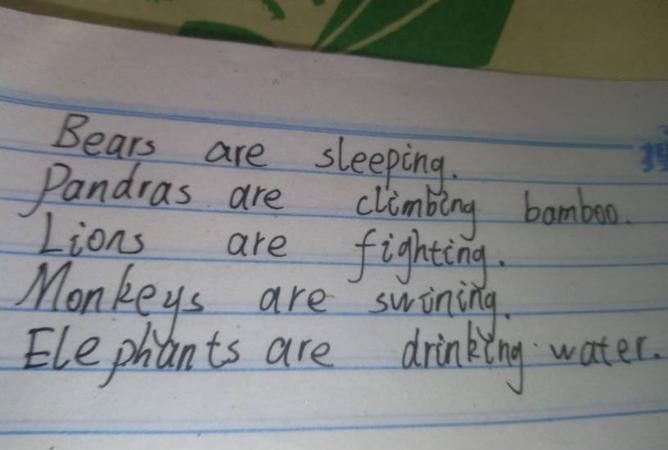 Bears are sleeping.
Pandras are climbing bamboo.
Lions are fighting.
Monkeys are swining.
Elephants are drinking water.